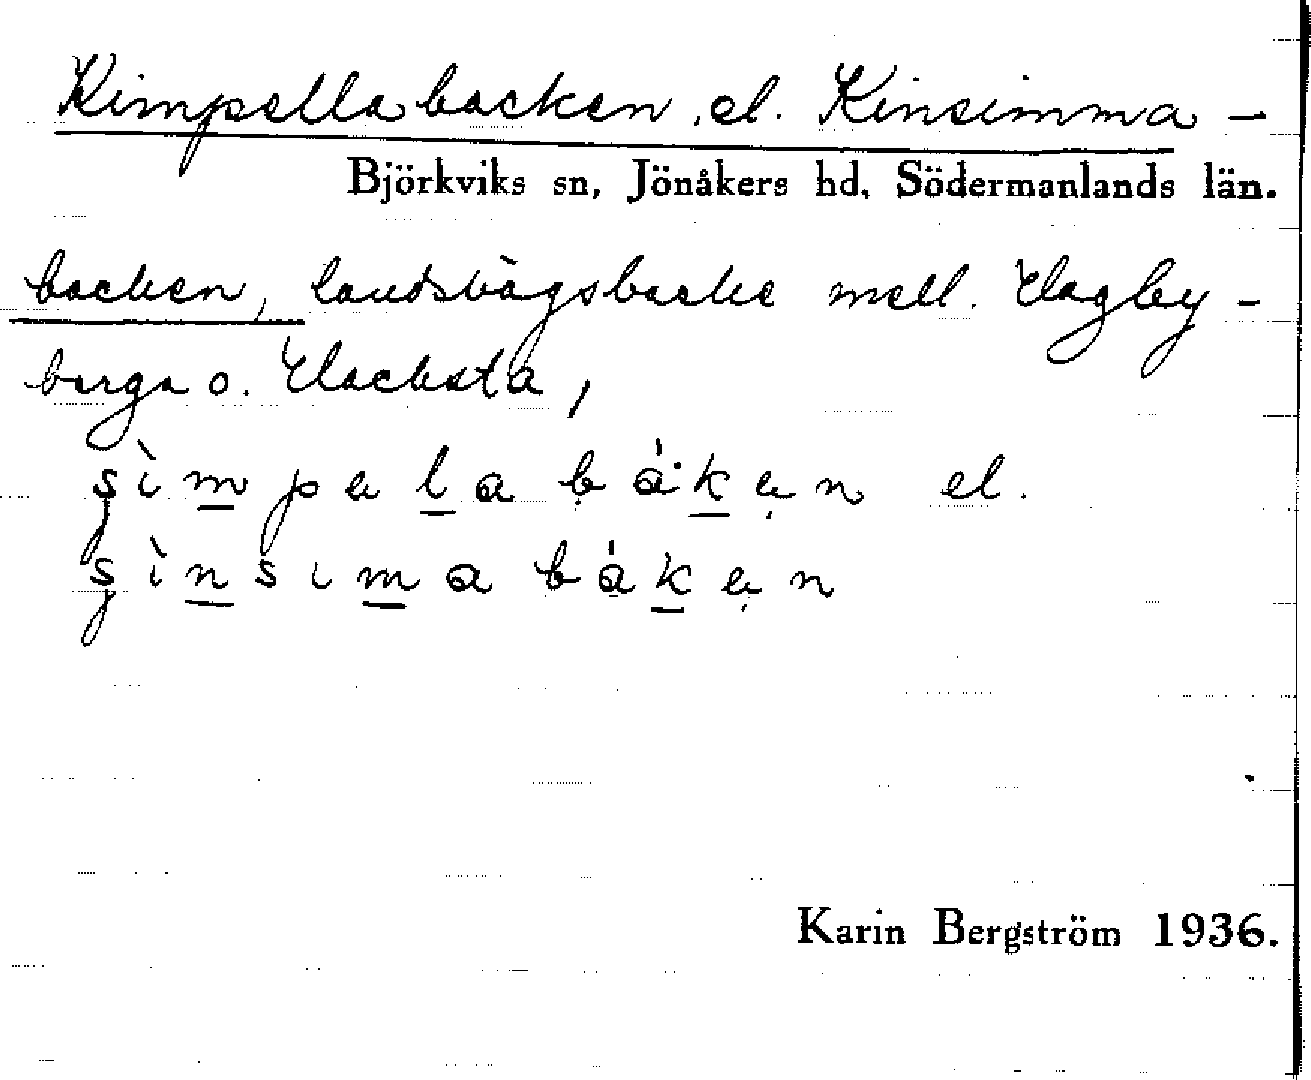 Kimpellabacken, el. Kinsimma-
Björkviks sn, Jönåkers hd, Södermanlands län.
backen, landsvägsbacke mell. Hagby-
berga o. Hacksta,
şìmpelabáken el.
şìnsimabáken
Karin Bergström 1936.